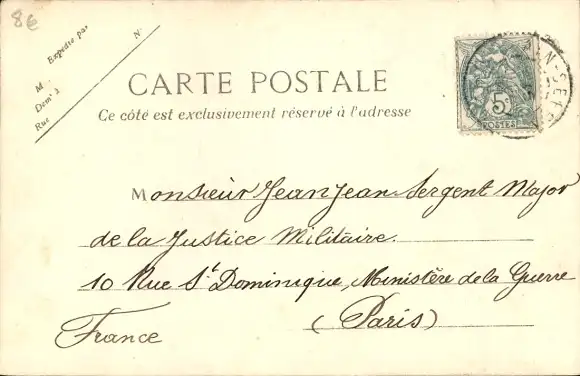 8€
Expédié par
N°
M
Demt à
Rue
CARTE POSTALE
Ce côté est exclusivement réservé à l'adresse
5c
POSTES
Monsieur Jeanjean Sergent Major
de la Justice Militaire.
10 Rue St Dominique, Ministère de la Guerre
(Paris)
France